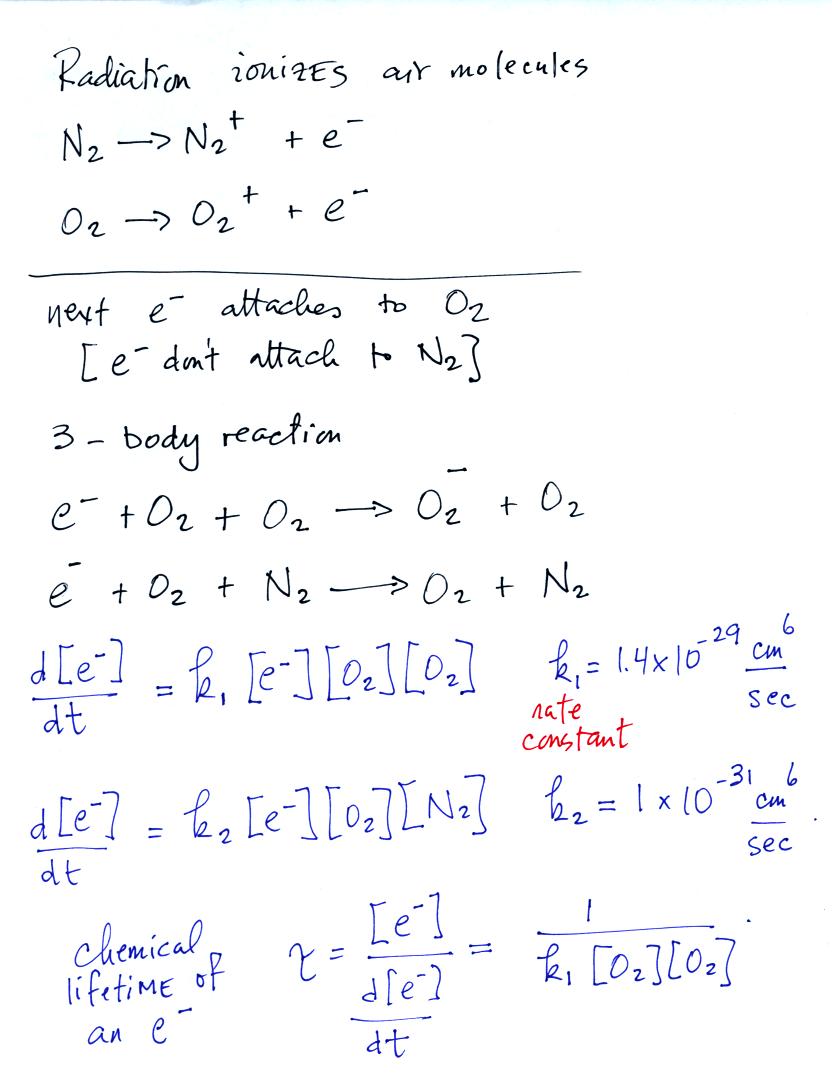 Radiation ionizes air molecules
N₂ → N₂⁺ + e⁻
O₂ → O₂⁺ + e⁻
next e⁻ attaches to O₂
[e⁻ don't attach to N₂]
3 - body reaction
e⁻ + O₂ + O₂ → O₂⁻ + O₂
e⁻ + O₂ + N₂ → O₂ + N₂
d[e⁻]/dt = k₁ [e⁻][O₂][O₂] k₁ = 1.4 x 10⁻²⁹ cm⁶/sec
rate
constant
d[e⁻]/dt = k₂ [e⁻][O₂][N₂] k₂ = 1 x 10⁻³¹ cm⁶/sec
chemical
lifetime of
an e⁻
τ = [e⁻]/(d[e⁻]/dt) = 1/(k₁ [O₂][O₂])